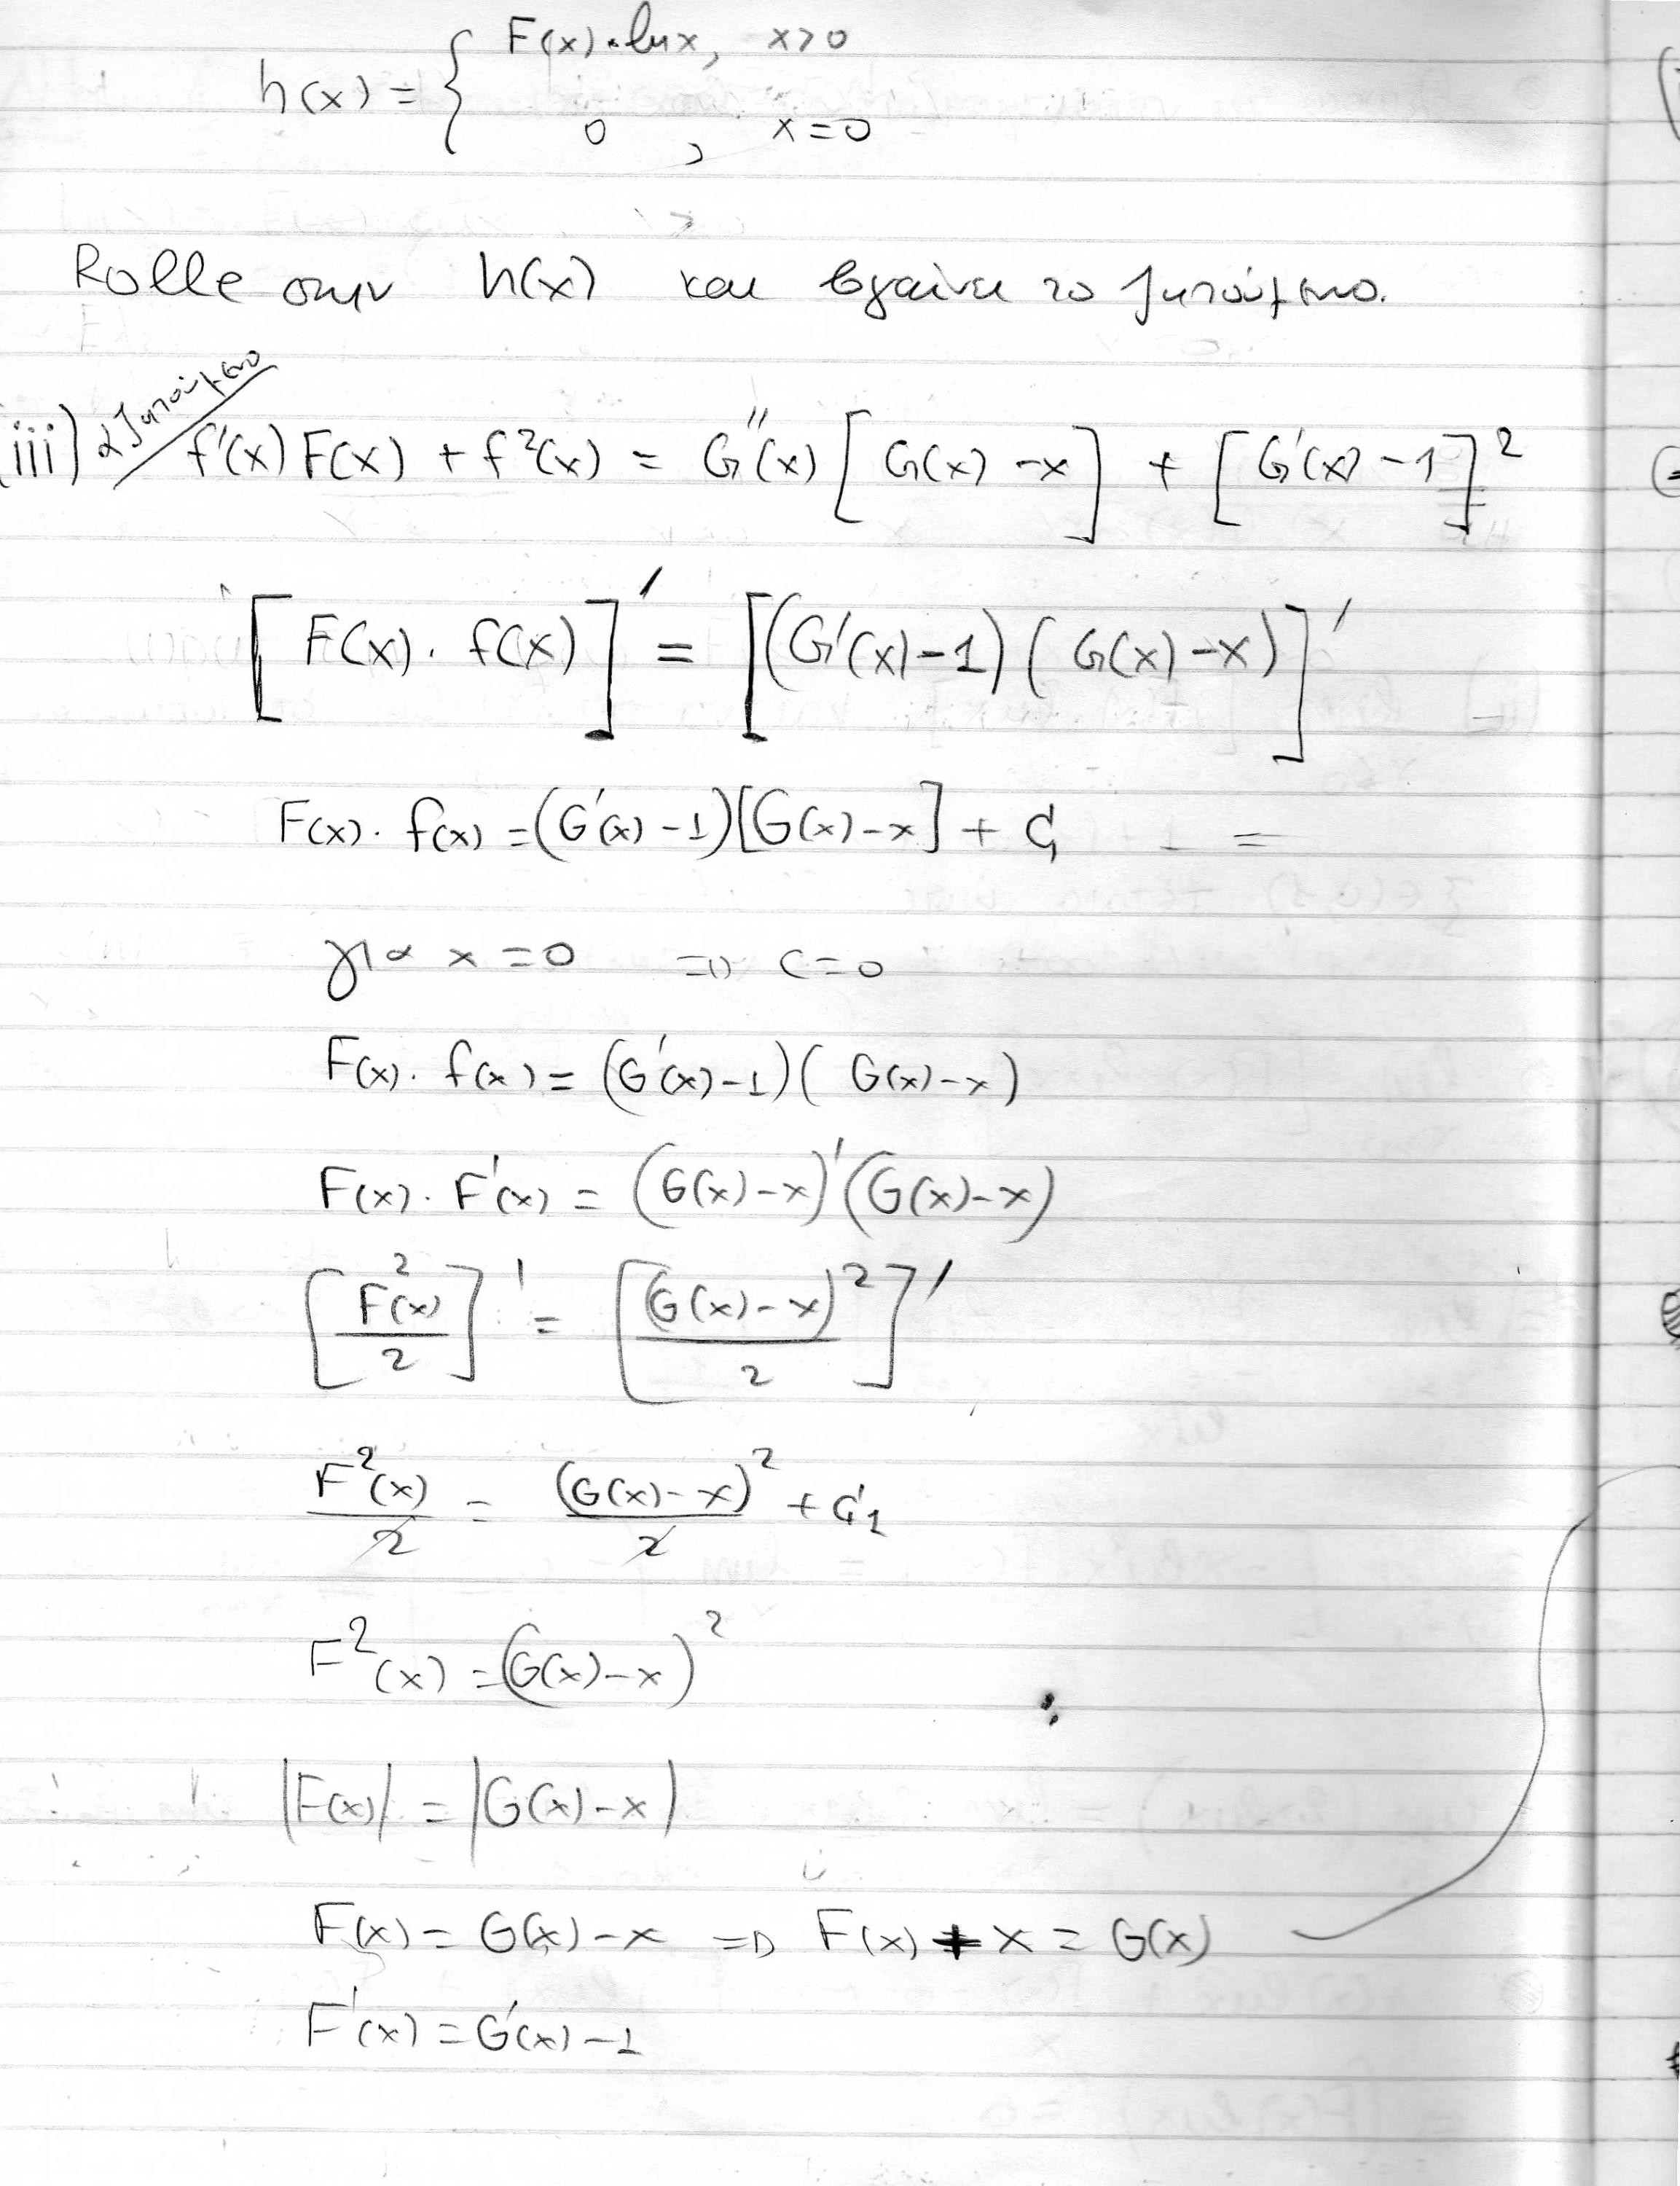 h(x) = { F(x)·lnx, x>0
0 , x=0
Rolle στην h(x) και βγαίνει το ζητούμενο.
iii) 2 ζητούμενο
f'(x) F(x) + f²(x) = G''(x) [ G(x) - x ] + [ G'(x) - 1 ]²
[ F(x) · f(x) ]' = [ (G'(x) - 1) ( G(x) - x) ]'
F(x) · f(x) = (G'(x) - 1) [G(x) - x] + C, =
για x = 0 ⇒ c = 0
F(x) · f(x) = (G'(x) - 1) ( G(x) - x)
F(x) · F'(x) = (G(x) - x)' (G(x) - x)
[ F²(x) / 2 ]' = [ (G(x) - x)² / 2 ]'
F²(x) / 2 = (G(x) - x)² / 2 + C₁
F²(x) = (G(x) - x)²
|F(x)| = |G(x) - x|
F(x) = G(x) - x ⇒ F(x) + x = G(x)
F'(x) = G'(x) - 1